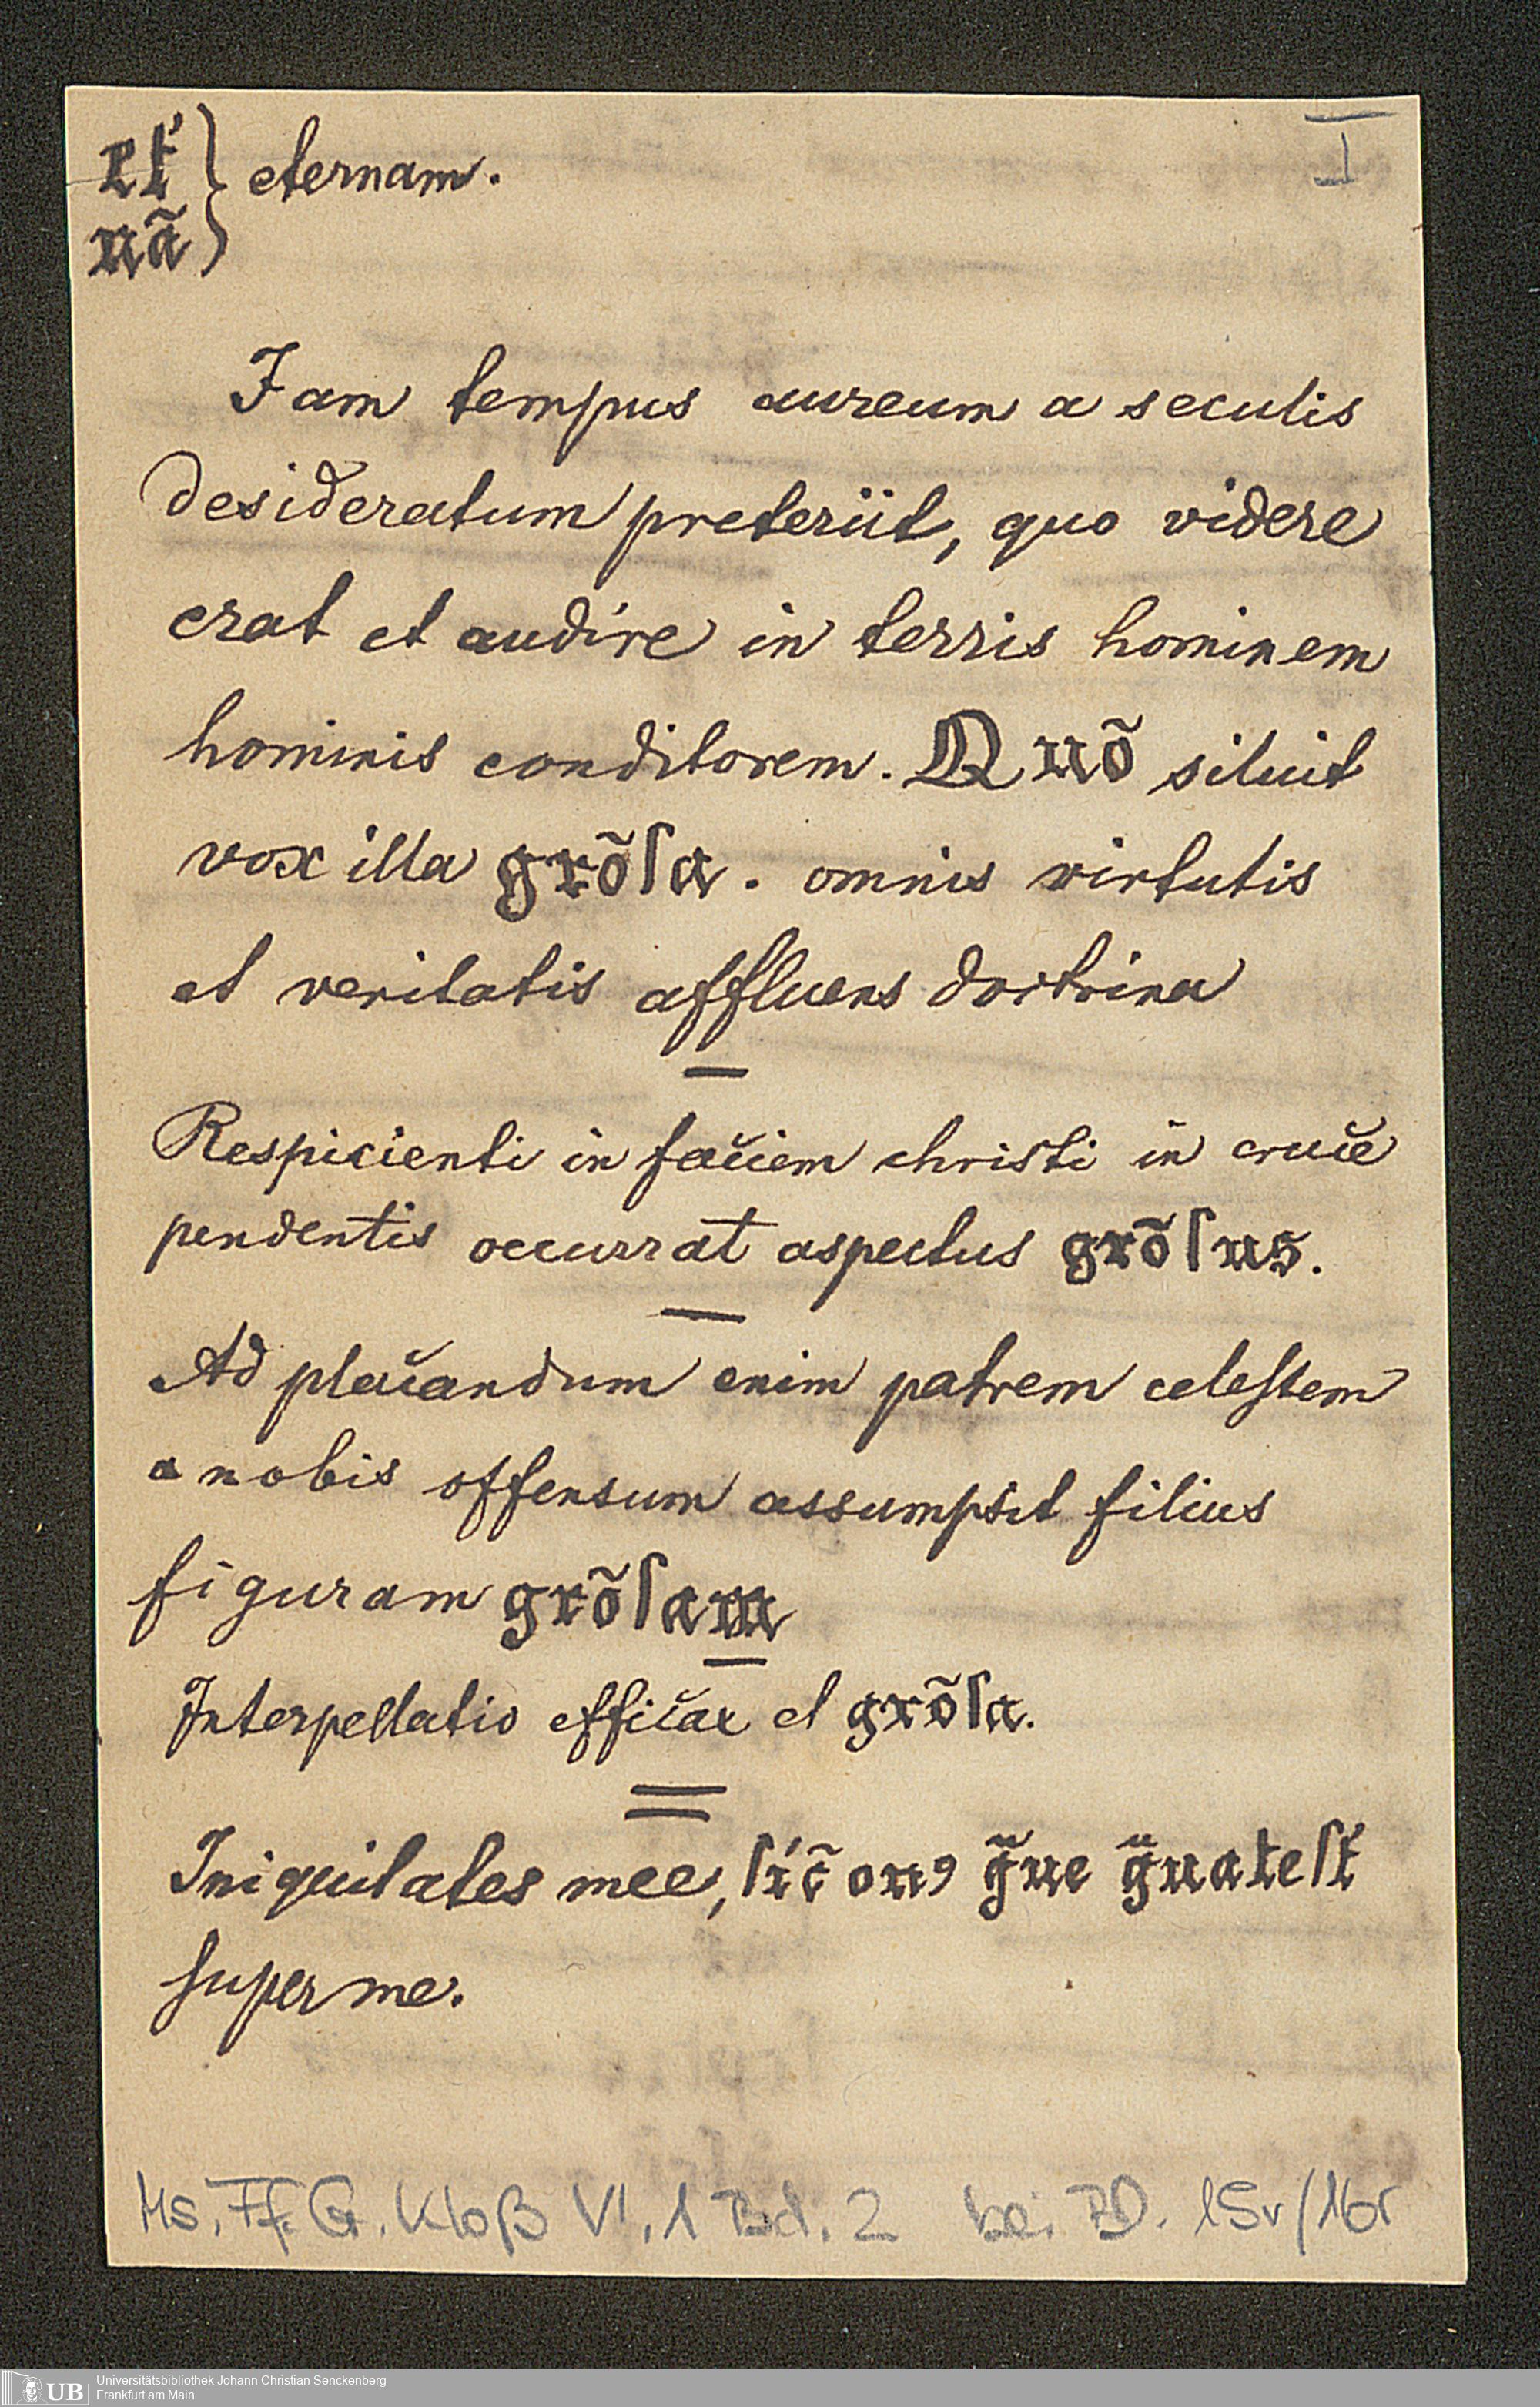 et' } eternam.
I
nã
Iam tempus aureum a seculis
desideratum preteriit, quo videre
erat et audire in terris hominem
hominis conditorem. Quõ siluit
vox illa grõſa. omnis virtutis
et veritatis affluens doctrina
Respicienti in faciem christi in cruce
pendentis occurrat aspectus grõſus.
Ad placandum enim patrem celeſtem
a nobis offensum assumpsit filius
figuram grõſam
Interpellatio efficax et grõſa.
Iniquitates mee, ſic̃ onꝰ g̃ue g̃uate ſt'
ſuper me.
Ms. Ff. G. Kloß VI, 1 Bd. 2 bei BD. 15v/16r
Universitätsbibliothek Johann Christian Senckenberg
UB Frankfurt am Main